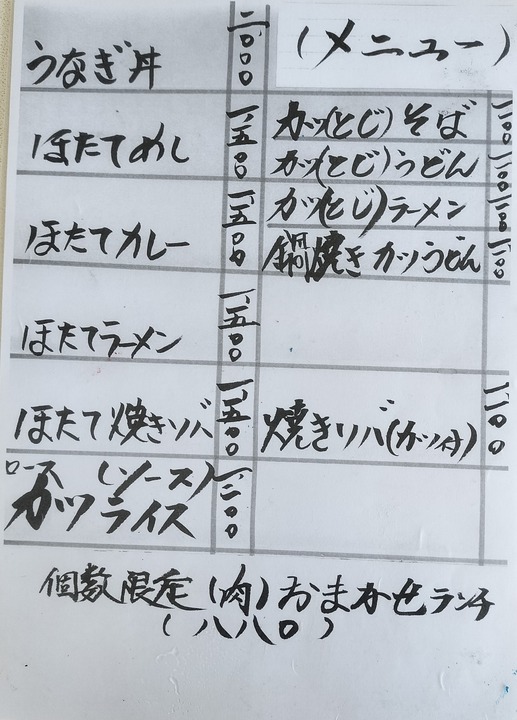 (メニュー)
うなぎ丼 二、〇〇〇
ほたてめし 一、五〇〇
ほたてカレー 一、五〇〇
ほたてラーメン 一、五〇〇
ほたて焼きソバ 一、五〇〇
ロース(ソース)
カツライス 一、二〇〇
カツ(とじ)そば 一、一〇〇
カツ(とじ)うどん 一、一〇〇
カツ(とじ)ラーメン 一、一〇〇
鍋焼きカツうどん 一、一〇〇
焼きソバ(カツ付) 一、一〇〇
個数限定(肉)おまかせランチ
(八八〇)